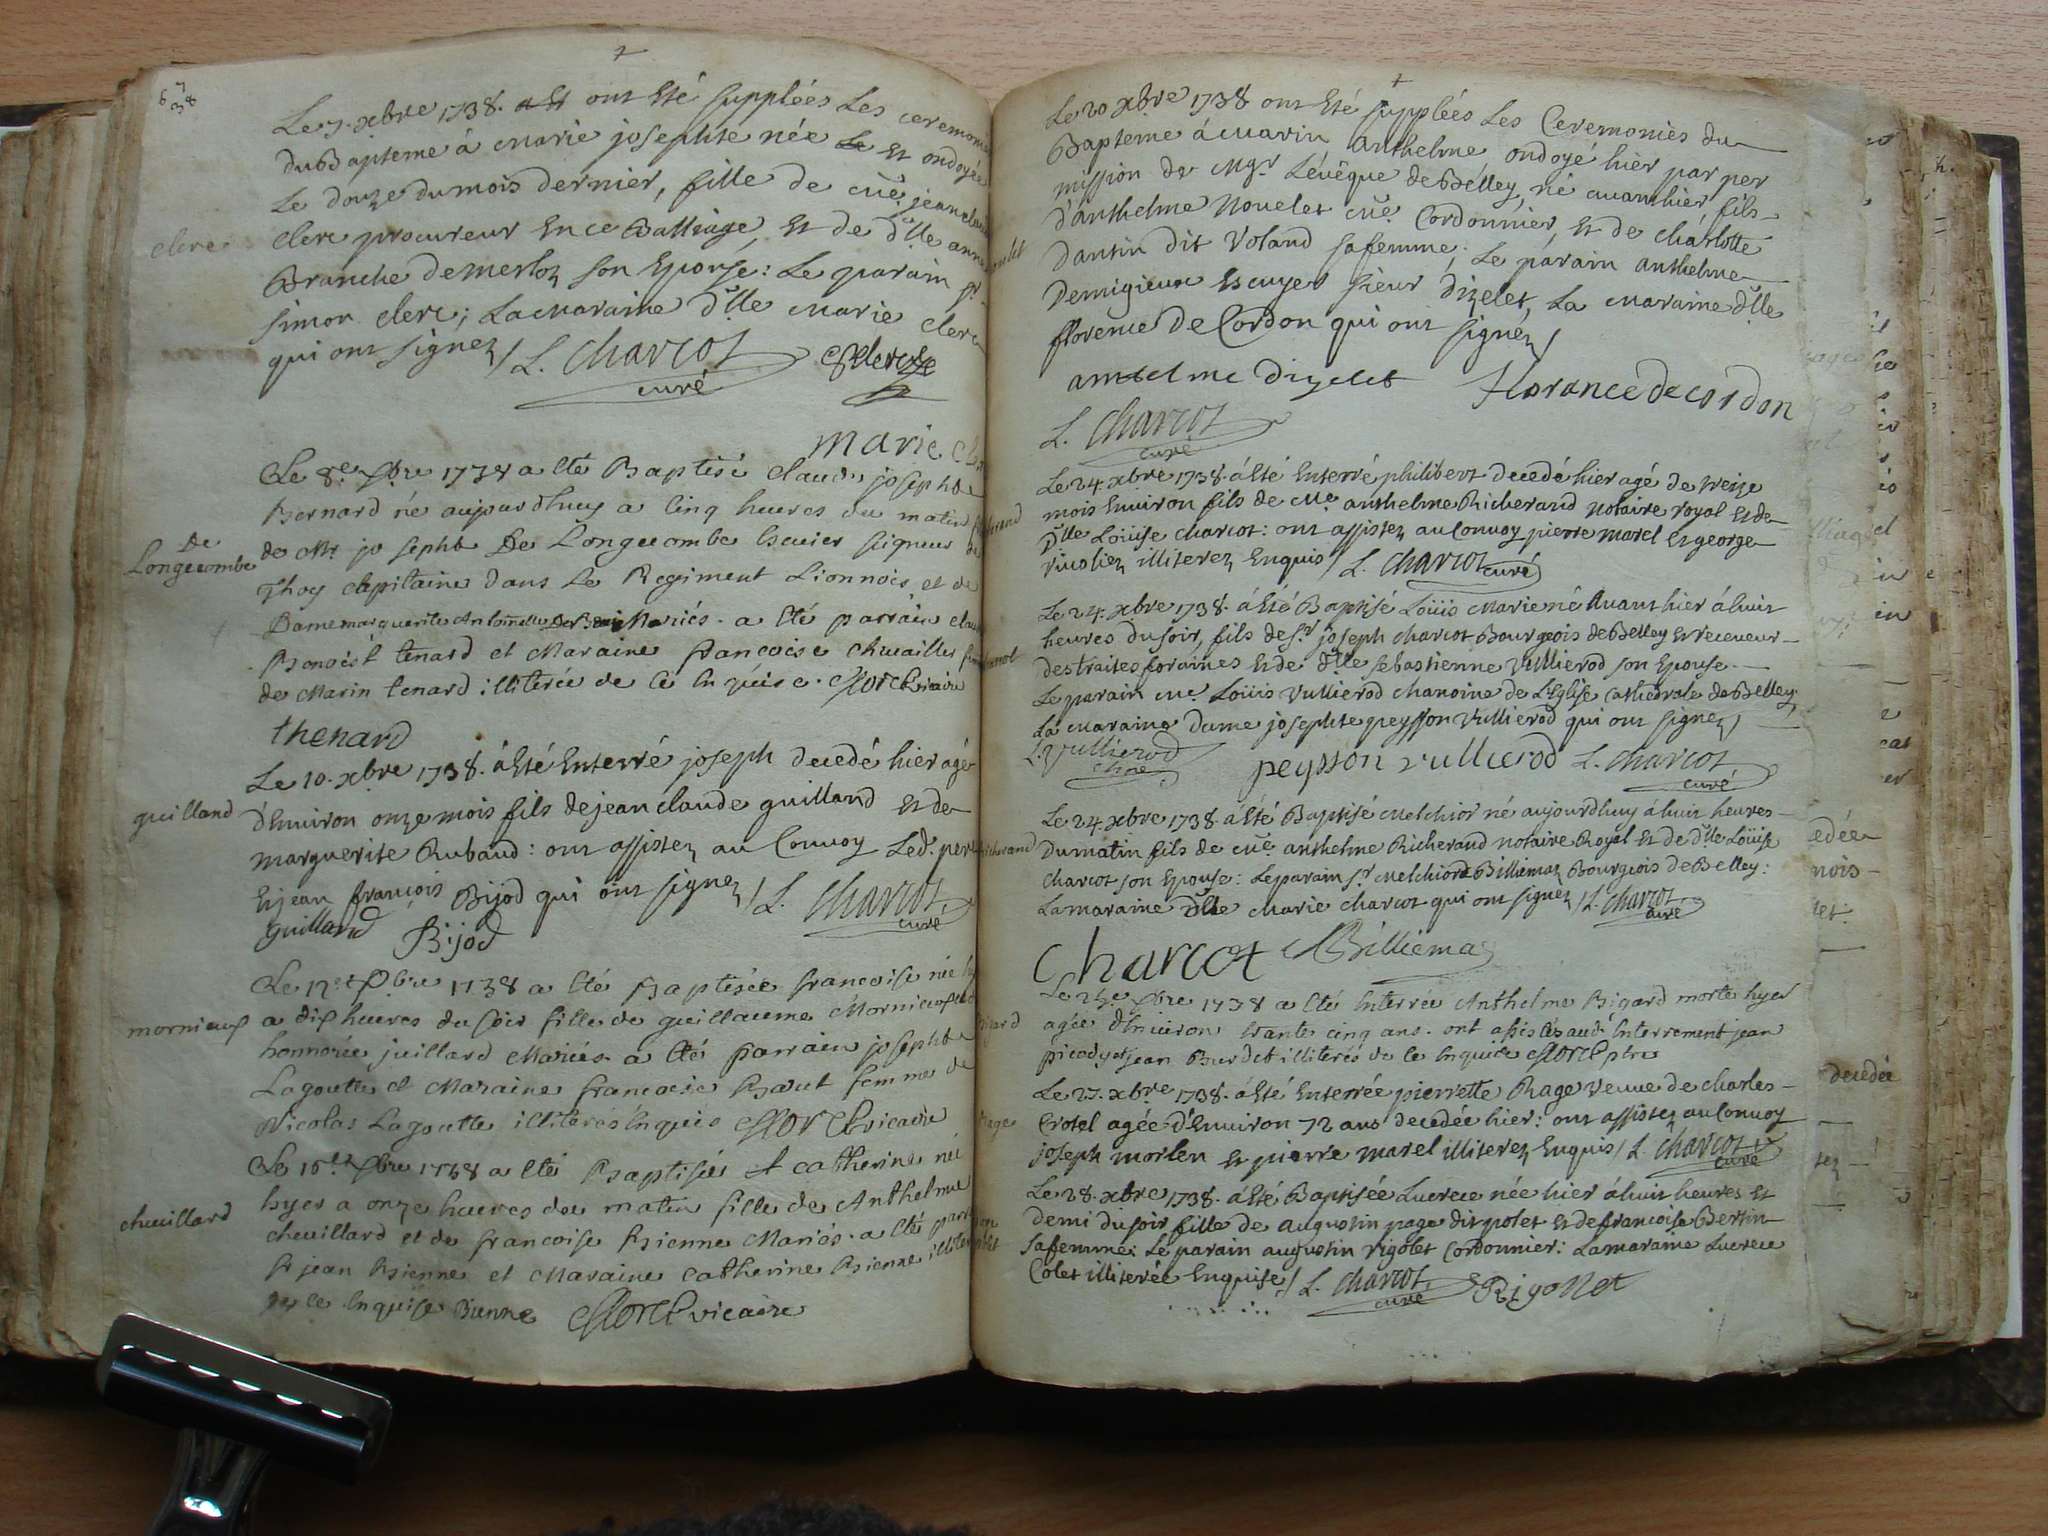 Le 7. xbre 1738. ont Eté Supplées Les ceremonies
du Bapteme à Marie josephte née Et ondoyée
Le douze du mois dernier, fille de Me. jean claude
clerc
clerc procureur En ce Balliage, Et de dlle anne
Branche demerloz son Epouse: Le parain sr.
simon clerc; La Maraine dlle Marie clerc
qui ont signez / L. Charcot
curé
Marie
Le 8.e xbre 1738 a Eté Baptisé claude josephte
Bernard né aujourdhuy a Cinq heures du matin
de Longecombe
de Mr. josephte De Longecombe Ecuier seigneur de
Thoy Capitaine dans Le Regiment Lionnois et de
Dame marguerite Antoinette Mariés. a été parrain
Benoist tenard et Maraine francoise chevailler
de Marin tenard illiterée de ce Enquise. vicaire
thenard
Le 10. xbre 1738. àEté Enterré joseph decedé hier agé
guilland
d'Environ onze mois fils de jean claude guilland Et de
marguerite Rubaud: ont assistez au Convoy Led. pere
Et jean françois Bijod qui ont signez / L. Charcot
curé
guilland Bijod
Le 12.e xbre 1738 a Eté Baptisée francoise née
mornieux
a dix heures du soir fille de guillaume Mornieux et
honnorée juillard Mariés. a Eté parrain josephte
Lagoutte et Maraine francoise Baut femme de
Nicolas Lagoutte illiterés Enquis vicaire
Le 16.e xbre 1738 a Eté Baptisée catherine née
chevillard
hyer a onze heures du matin fille de Anthelme
chevillard et de francoise Bienne Mariés. a Eté parrain
Sr jean Bienne et Maraine Catherine Bienne
de ce Enquise Bienne vicaire
Le 20 xbre 1738 ont Eté Supplées Les Ceremonies du
Bapteme à Marin Anthelme, ondoyé hier par per
mission de Mgr. L'évêque de Belley, né avanthier fils
d'anthelme Nouelet Me. Cordonnier, Et de charlotte
Dantin dit Voland safemme; Le parain anthelme
Demigieux Escuyer sieur Dizelet, La Maraine dlle
fflorence de Cordon qui ont signez /
antelme dizelet Florance de cordon
L. Charcot
curé
Le 24. xbre 1738. àEté Enterré philibert decedé hier agé de treize
mois Environ fils de Me. anthelme Richerand notaire royal Et de
Dlle Loüise charcot: ont assistez au Convoy pierre marel Et george
illiterez Enquis / L. Charcot curé
Le 24. xbre 1738. àEté Baptisé Loüis Marie né Avant hier àhuit
heures du soir, fils de Sr joseph charcot Bourgeois de Belley Et receveur
des traites foraines Et de dlle sebastienne Vullierod son Epouse.
Le parain Me Loüis Vullierod chanoine de L'Eglise Cathedrale de Belley;
La Maraine dame josephte peysson Vullierod qui ont signez /
L. Vullierod
chne
peysson vullierod L. Charcot
curé
Le 24. xbre 1738 àEté Baptisé Melchior né aujourdhuy àhuit heures
du matin fils de Me. anthelme Richerand notaire Royal Et de dlle Loüise
charcot son Epouse: Le parain sr. Melchiord Billiemaz Bourgeois de Belley:
La maraine dlle Marie charcot qui ont signez / L. Charcot
curé
Charcot Billiemaz
Le 25.e xbre 1738 a Eté Enterrée Anthelme Bigard morte hyer
agée d'Environ cinq ans. ont assistés aud. Enterrement jean
picod et jean Burdet illiterés de ce Enquise ptre
Le 27. xbre 1738. àEté Enterrée pierrette Rage veuve de charles
Crotel agée d'Environ 72 ans decedée hier: ont assistez au Convoy
joseph morlen Et pierre marel illiterez Enquis / L. Charcot
curé
Le 28. xbre 1738. àEté Baptisée Lucrece née hier àhuit heures Et
demi du soir fille de augustin page dit polet Et de francoise Bertin
safemme: Le parain augustin rigolet Cordonnier: La maraine Lucrece
Colet illiterée Enquise / L. Charcot
curé
Rigollet
decedée